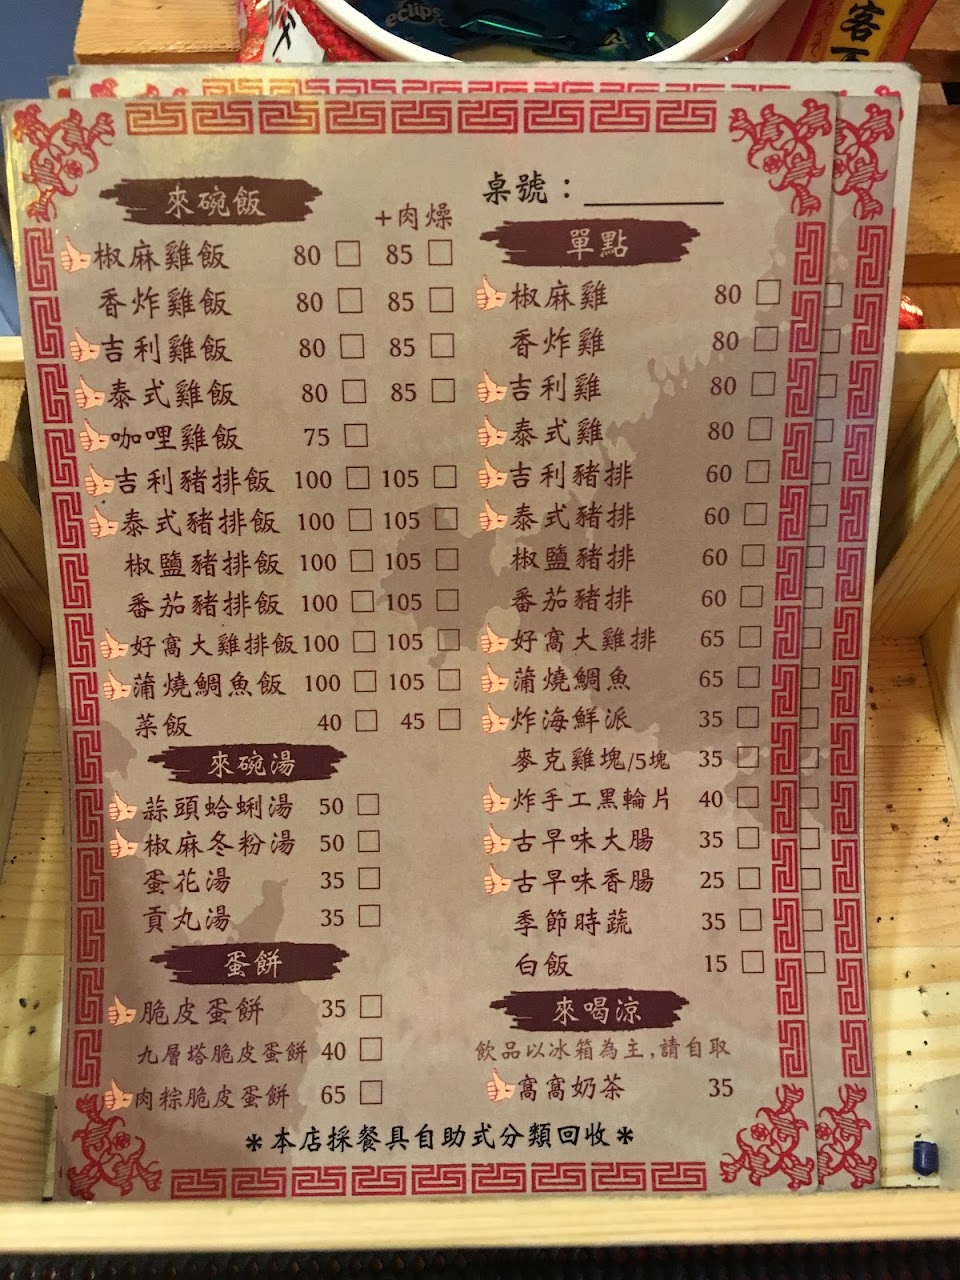 eclips
客
桌號：
來碗飯
+肉燥
椒麻雞飯 80 □ 85 □
香炸雞飯 80 □ 85 □
吉利雞飯 80 □ 85 □
泰式雞飯 80 □ 85 □
咖哩雞飯 75 □
吉利豬排飯 100 □ 105 □
泰式豬排飯 100 □ 105 □
椒鹽豬排飯 100 □ 105 □
番茄豬排飯 100 □ 105 □
好窩大雞排飯 100 □ 105 □
蒲燒鯛魚飯 100 □ 105 □
菜飯 40 □ 45 □
來碗湯
蒜頭蛤蜊湯 50 □
椒麻冬粉湯 50 □
蛋花湯 35 □
貢丸湯 35 □
蛋餅
脆皮蛋餅 35 □
九層塔脆皮蛋餅 40 □
肉粽脆皮蛋餅 65 □
單點
椒麻雞 80 □
香炸雞 80 □
吉利雞 80 □
泰式雞 80 □
吉利豬排 60 □
泰式豬排 60 □
椒鹽豬排 60 □
番茄豬排 60 □
好窩大雞排 65 □
蒲燒鯛魚 65 □
炸海鮮派 35 □
麥克雞塊/5塊 35 □
炸手工黑輪片 40 □
古早味大腸 35 □
古早味香腸 25 □
季節時蔬 35 □
白飯 15 □
來喝涼
飲品以冰箱為主,請自取
窩窩奶茶 35
*本店採餐具自助式分類回收*